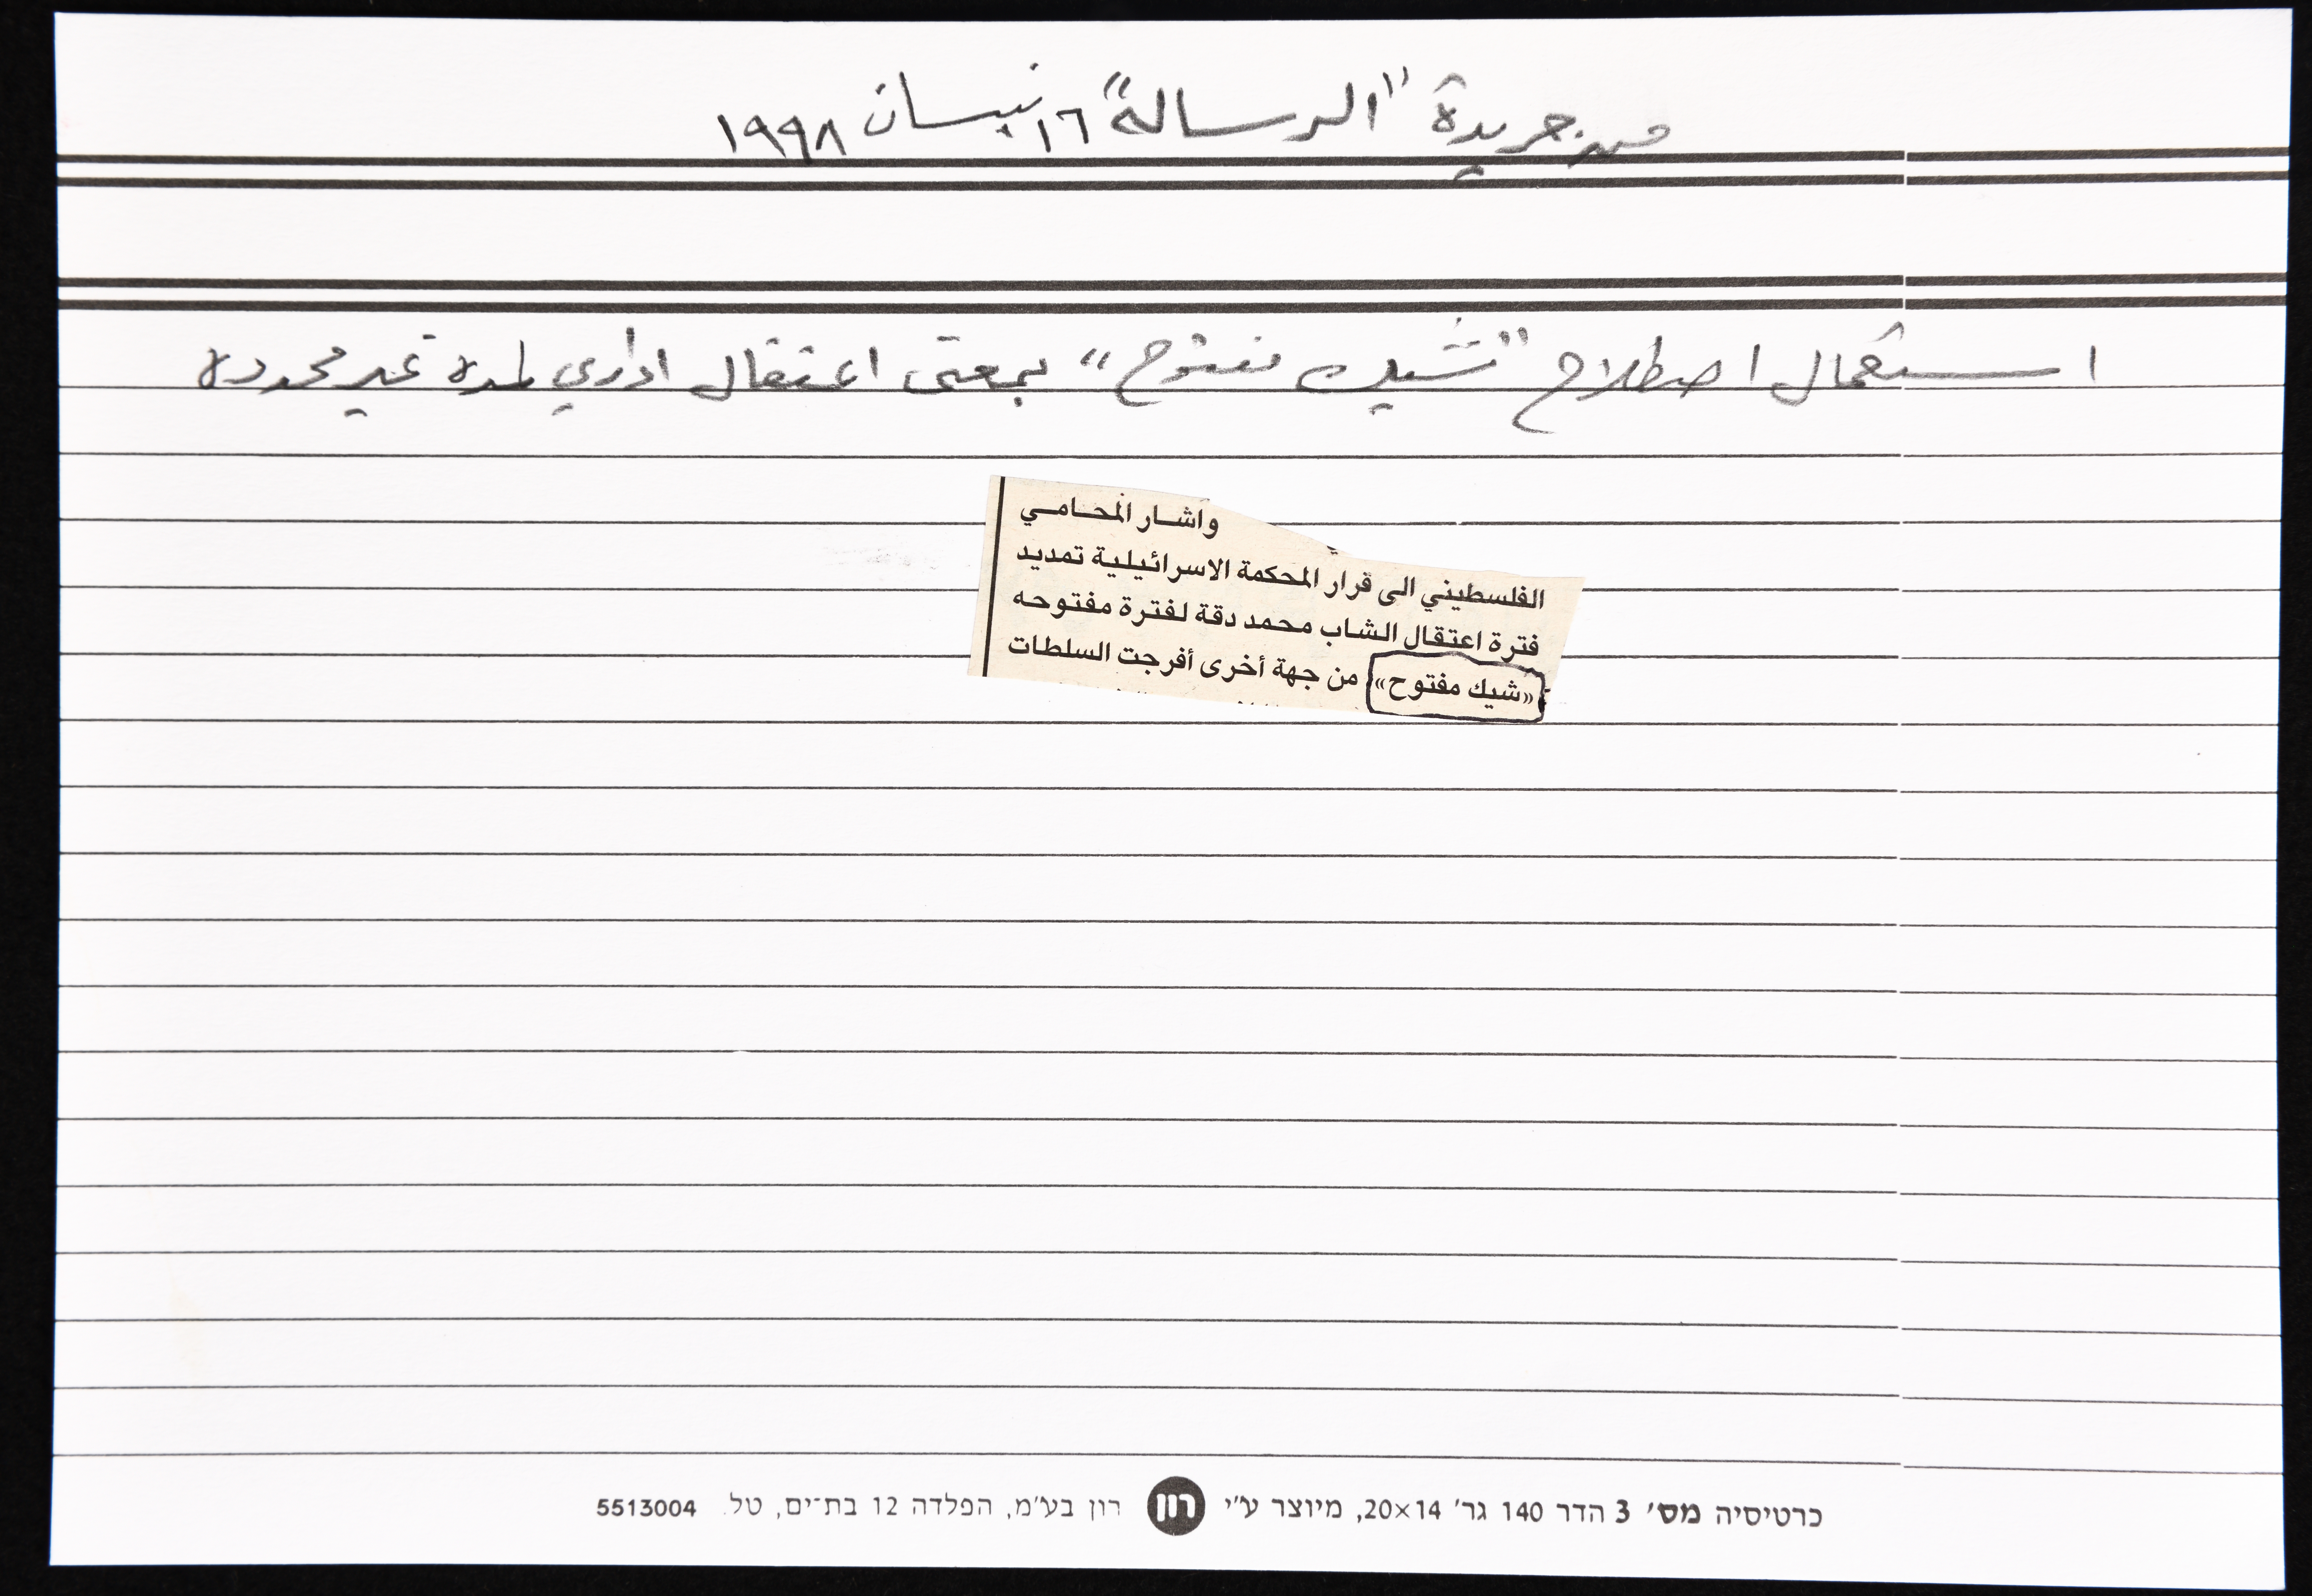 من جريدة "الرسالة" ١٦ نيسان ١٩٩٨
استعمال اصطلاح "شيك مفتوح" بمعنى اعتقال اداري لمدة غير محدده
واشار المحامي
الفلسطيني الى قرار المحكمة الاسرائيلية تمديد
فترة اعتقال الشاب محمد دقة لفترة مفتوحه
«شيك مفتوح» من جهة أخرى أفرجت السلطات
כרטיסיה מס׳ 3 הדר 140 גר׳ 20×14, מיוצר ע״י רון רון בע״מ, הפלדה 12 בת־ים, טל. 5513004